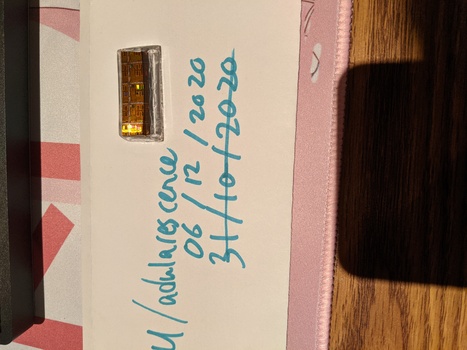 u/adularescence
06/12/2020
31/10/2020